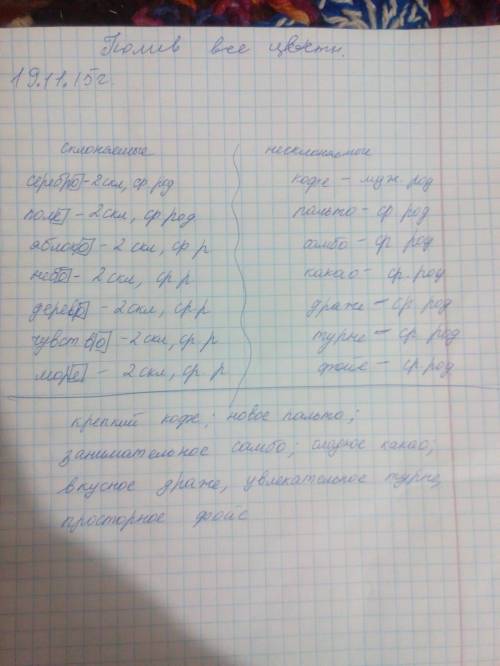 Полив все цветы.
19.11.15г.
склоняемые несклоняемые
серебро - 2 скл, ср. род кофе - муж. род
поле - 2 скл, ср. род пальто - ср. род
яблоко - 2 скл, ср. р самбо - ср. род
небо - 2 скл, ср. р какао - ср. род
дерево - 2 скл, ср. р драже - ср. род
чувство - 2 скл, ср. р турне - ср. род
море - 2 скл, ср. р фойе - ср. род
крепкий кофе; новое пальто;
занимательное самбо; сладкое какао;
вкусное драже, увлекательное турне,
просторное фойе